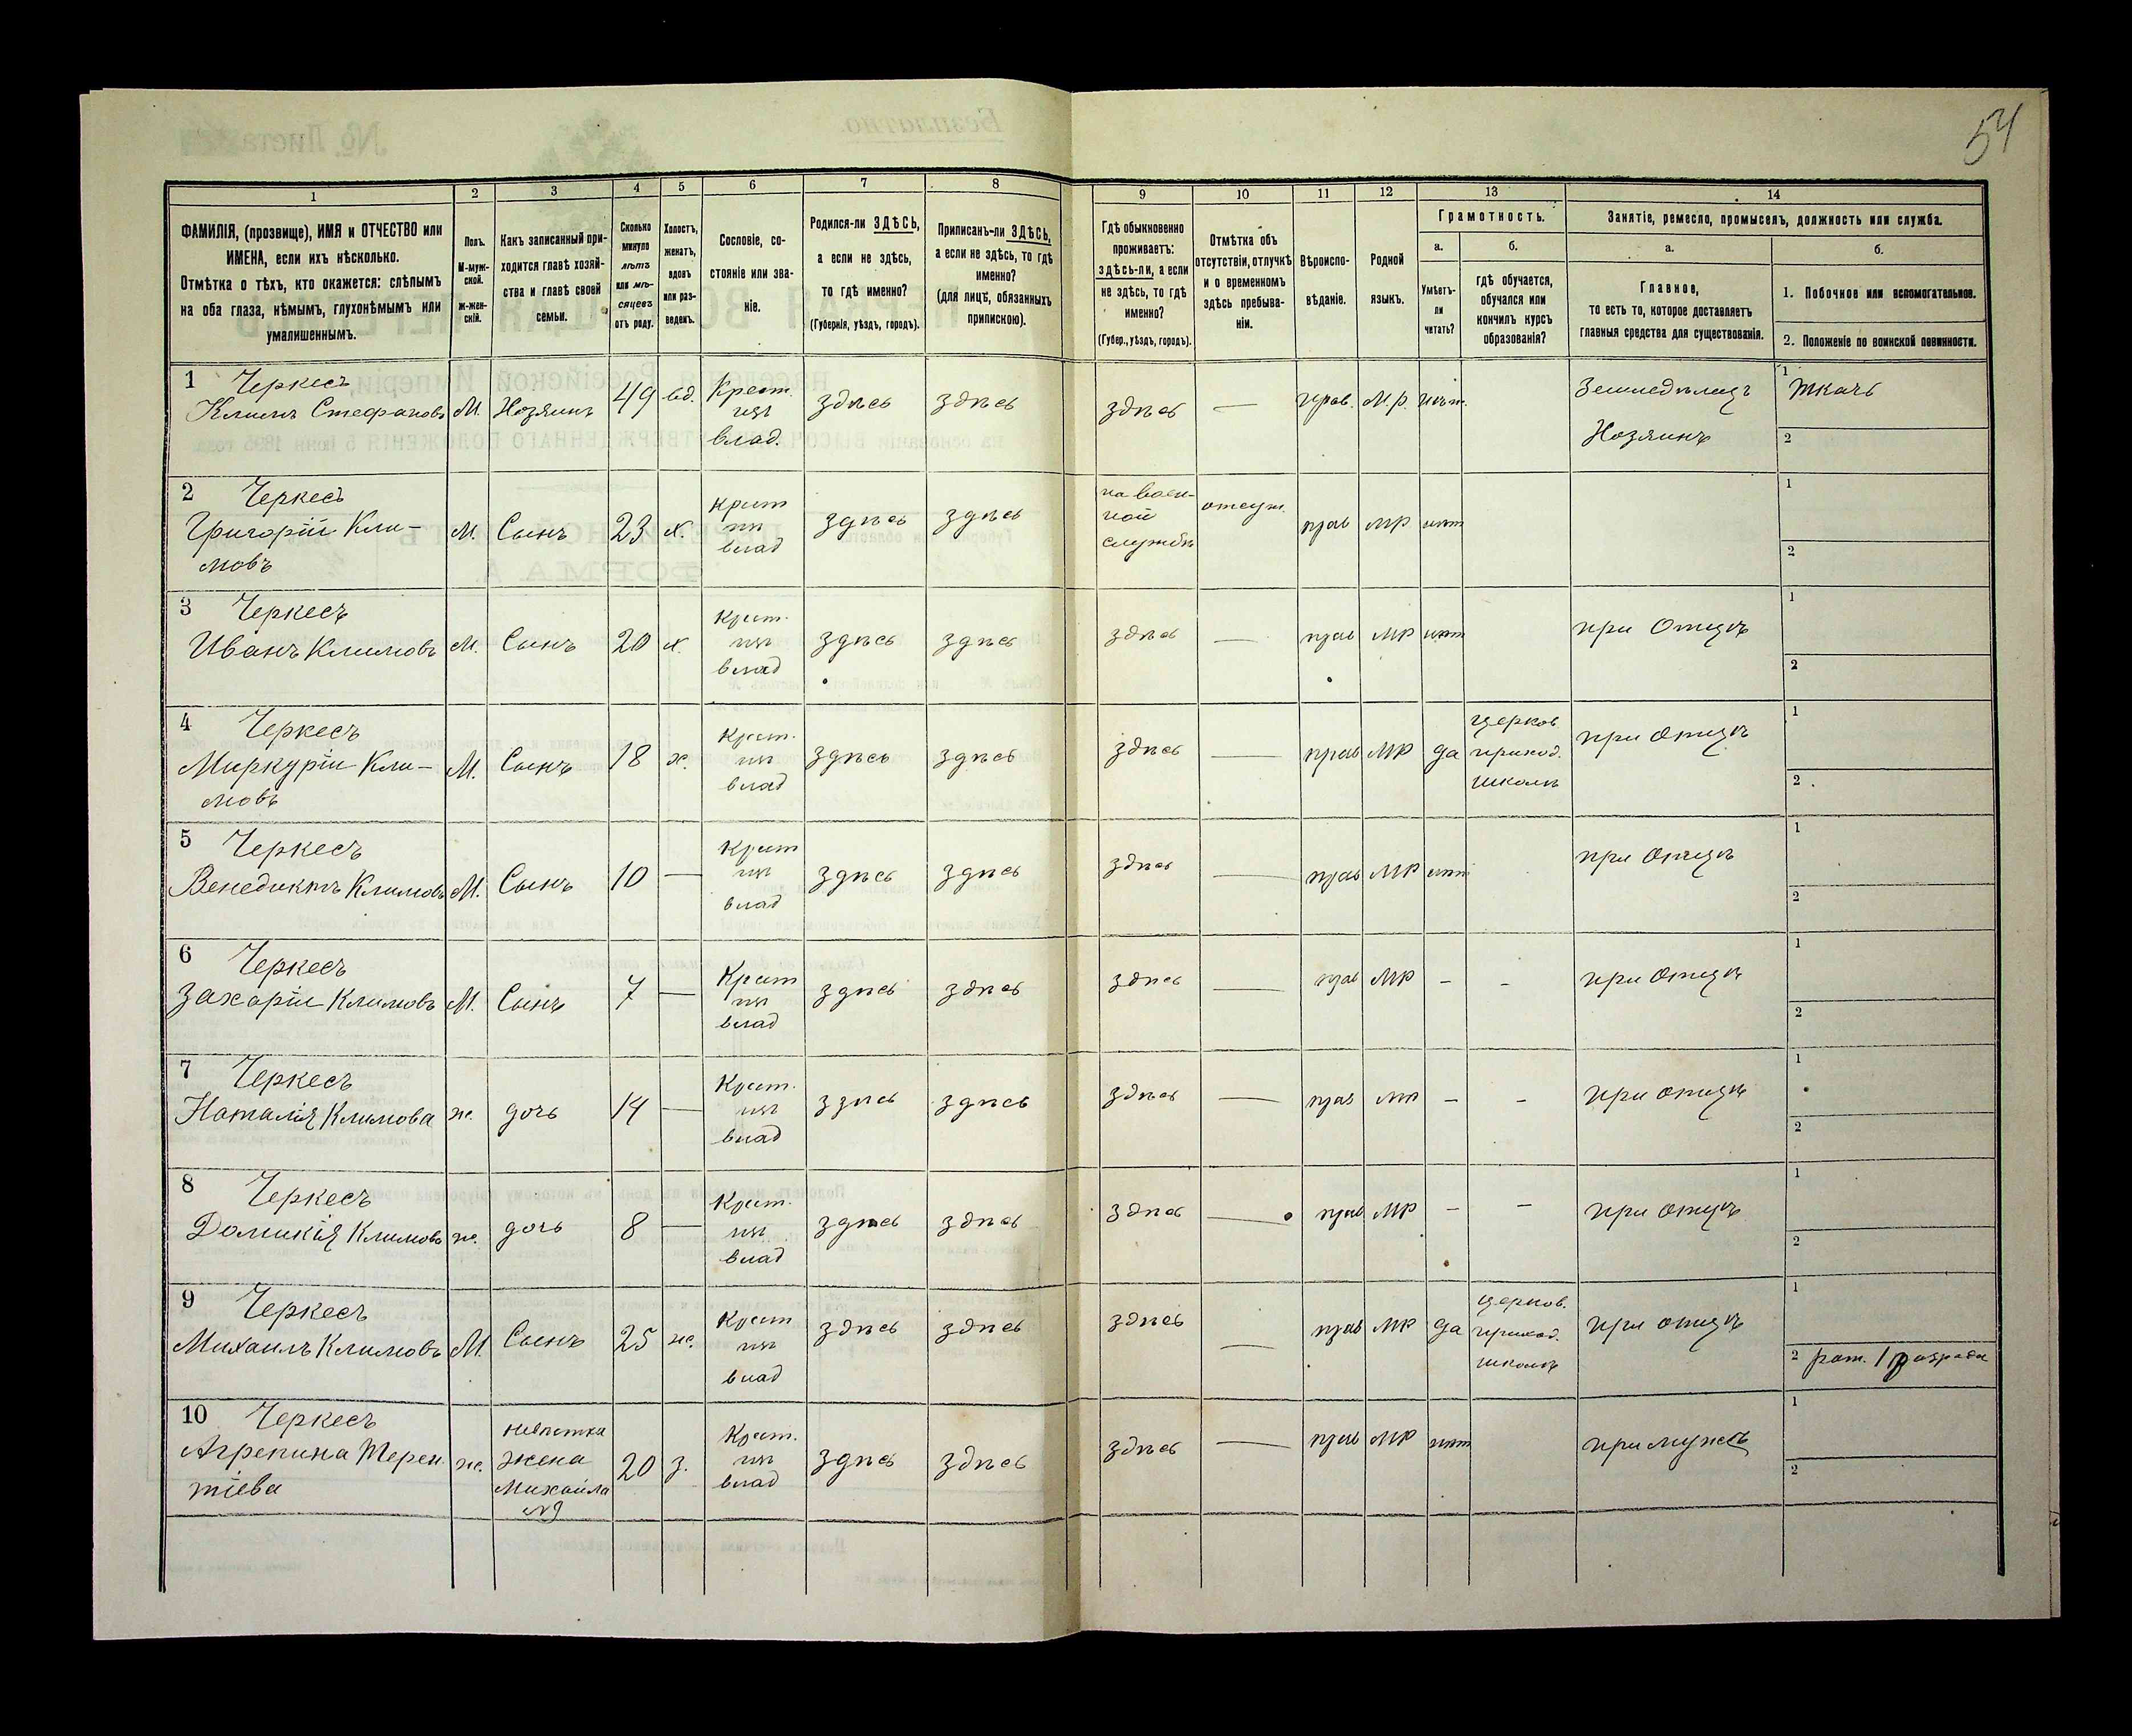 54
1 2 3 4 5 6 7 8 9 10 11 12 13 14
ФАМИЛІЯ, (прозвище), ИМЯ и ОТЧЕСТВО или
ИМЕНА, если ихъ нѣсколько.
Отмѣтка о тѣхъ, кто окажется: слѣпымъ
на оба глаза, нѣмымъ, глухонѣмымъ или
умалишеннымъ.
Полъ.
М-муж-
ской.
ж-жен-
скій.
Какъ записанный при-
ходится главѣ хозяй-
ства и главѣ своей
семьи.
Сколько
минуло
лѣтъ
или мѣ-
сяцевъ
отъ роду.
Холостъ,
женатъ,
вдовъ
или раз-
веденъ.
Сословіе, со-
стояніе или зва-
ніе.
Родился-ли ЗДѢСЬ,
а если не здѣсь,
то гдѣ именно?
(Губернія, уѣздъ, городъ).
Приписанъ-ли ЗДѢСЬ,
а если не здѣсь, то гдѣ
именно?
(для лицъ, обязанныхъ
припискою).
Гдѣ обыкновенно
проживаетъ:
здѣсь-ли, а если
не здѣсь, то гдѣ
именно?
(Губер., уѣздъ, городъ).
Отмѣтка объ
отсутствіи, отлучкѣ
и о временномъ
здѣсь пребыва-
ніи.
Вѣроиспо-
вѣданіе.
Родной
языкъ.
Грамотность.
а.
Умѣетъ-
ли
читать?
б.
гдѣ обучается,
обучался или
кончилъ курсъ
образованія?
Занятіе, ремесло, промыселъ, должность или служба.
а.
Главное,
то есть то, которое доставляетъ
главныя средства для существованія.
б.
1. Побочное или вспомогательное.
2. Положеніе по воинской повинности.
1 Черкесъ
Климъ Стефановъ М. Хозяинъ 49 вд. Крест.
изъ
влад. здѣсь здѣсь здѣсь — прав. М.р. нѣт. Земледѣлецъ
Хозяинъ
1 Ткачъ
2
2 Черкесъ
Григорій Кли-
мовъ М. Сынъ 23 х. Крест
изъ
влад здѣсь здѣсь на воен-
ной
службѣ отсут. прав МР нѣт
1
2
3 Черкесъ
Иванъ Климовъ М. Сынъ 20 х. Крест.
изъ
влад здѣсь здѣсь здѣсь — прав МР нѣт при Отцѣ
1
2
4 Черкесъ
Миркурій Кли-
мовъ М. Сынъ 18 х. Крест.
изъ
влад здѣсь здѣсь здѣсь — прав МР да церков
приход.
школѣ при Отцѣ
1
2
5 Черкесъ
Венедиктъ Климовъ М. Сынъ 10 — Крест
изъ
влад здѣсь здѣсь здѣсь — прав МР нѣт при Отцѣ
1
2
6 Черкесъ
Захарій Климовъ М. Сынъ 7 — Крест
изъ
влад здѣсь здѣсь здѣсь — прав МР - - при Отцѣ
1
2
7 Черкесъ
Наталія Климова ж. дочь 14 — Крест.
изъ
влад здѣсь здѣсь здѣсь — прав МР - - при отцѣ
1
2
8 Черкесъ
Домикія Климовъ ж. дочь 8 — Крест.
изъ
влад здѣсь здѣсь здѣсь — прав МР - - при отцѣ
1
2
9 Черкесъ
Михаилъ Климовъ М. Сынъ 25 ж. Крест
изъ
влад здѣсь здѣсь здѣсь — прав МР да церков.
приход.
школѣ при отцѣ
1
2 рат. 1 разряда
10 Черкесъ
Агрепина Терен-
тіева ж. невѣстка
жена
Михаила
№9 20 з. Крест.
изъ
влад здѣсь здѣсь здѣсь — прав МР нѣт при мужѣ
1
2